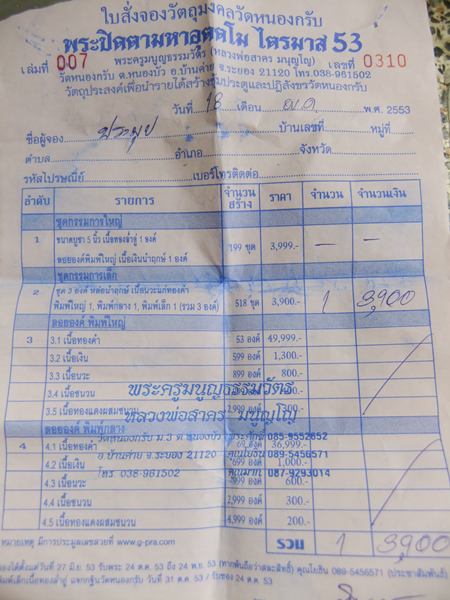 ใบสั่งจองวัตถุมงคลวัดหนองกรับ
พระปิดตามหาอุตตโม ไตรมาส 53
เล่มที่ 007 พระครูมนูญธรรมวัตร (หลวงพ่อสาคร มนุญโญ) เลขที่ 0310
วัดหนองกรับ ต.หนองบัว อ.บ้านค่าย จ.ระยอง 21120 โทร.038-961502
วัตถุประสงค์เพื่อนำรายได้สร้างซุ้มประตูและปฏิสังขรวัดหนองกรับ
วันที่ 18 เดือน พ.ศ. 2553
ชื่อผู้จอง บ้านเลขที่ หมู่ที่
ตำบล อำเภอ จังหวัด
รหัสไปรษณีย์ เบอร์โทรติดต่อ
ลำดับ รายการ จำนวนสร้าง ราคา จำนวน จำนวนเงิน
ชุดกรรมการใหญ่
1 ขนาดบูชา 5 นิ้ว เนื้อทองล่ำอู่ 1 องค์
ลอยองค์พิมพ์ใหญ่ เนื้อเงินนำฤกษ์ 1 องค์ 199 ชุด 3,999.- — —
ชุดกรรมการเล็ก
2 ชุด 3 องค์ หล่อนำฤกษ์ เนื้อนวะแก่ทองคำ
พิมพ์ใหญ่ 1, พิมพ์กลาง 1, พิมพ์เล็ก 1 (รวม 3 องค์) 518 ชุด 3,900.- 1 3,900
ลอยองค์ พิมพ์ใหญ่
3 3.1 เนื้อทองคำ 53 องค์ 49,999.-
3.2 เนื้อเงิน 599 องค์ 1,300.-
3.3 เนื้อนวะ 899 องค์ 800.-
3.4 เนื้อชนวน
พระครูมนูญธรรมวัตร
3.5 เนื้อทองแดงผสมชนวน 300.-
หลวงพ่อสาคร มนุญโญ
ลอยองค์ พิมพ์กลาง
วัดหนองกรับ ม.3 ต.หนองบัว 085-9552652
4 4.1 เนื้อทองคำ 36,999.-
อ.บ้านค่าย จ.ระยอง 21120 คุณโยธิน 089-5456571
4.2 เนื้อเงิน 1,000.-
โทร. 038-961502 087-9293014
4.3 เนื้อนวะ 600.-
4.4 เนื้อชนวน 2,999 องค์ 300.-
4.5 เนื้อทองแดงผสมชนวน 4,999 องค์ 200.-
หมายเหตุ มีการประมูลเลขสวยที่ www.g-pra.com รวม 1 3,900
ตั้งแต่วันที่ 27 มิ.ย. 53 รับพระ 24 ต.ค. 53 ถึง 24 พ.ย. 53 (หากพ้นถือว่าสละสิทธิ์) คุณโยธิน 089-5456571 (ประชาสัมพันธ์)
พิมพ์เล็กเนื้อทองล่ำอู่ แจกกฐินวัดหนองกรับ วันที่ 31 ต.ค. 53 / รับของ 24 ต.ค. 53